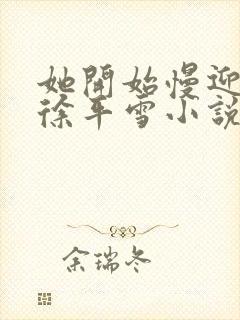 她開始慢迎
徐年雪小說
余瑞冬